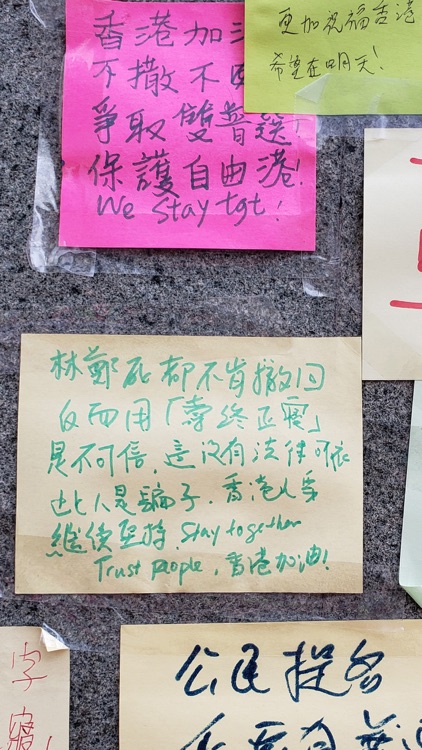 香港加
不撤不
爭取雙普選!
保護自由港!
We Stay tgt!
更加祝福香港
希望在明天!
林鄭死都不肯撤回
反而用「壽終正寢」
是不可信,這沒有法律可依
此人是騙子,香港人要
繼續堅持,Stay together
Trust people,香港加油!
字
公民提名